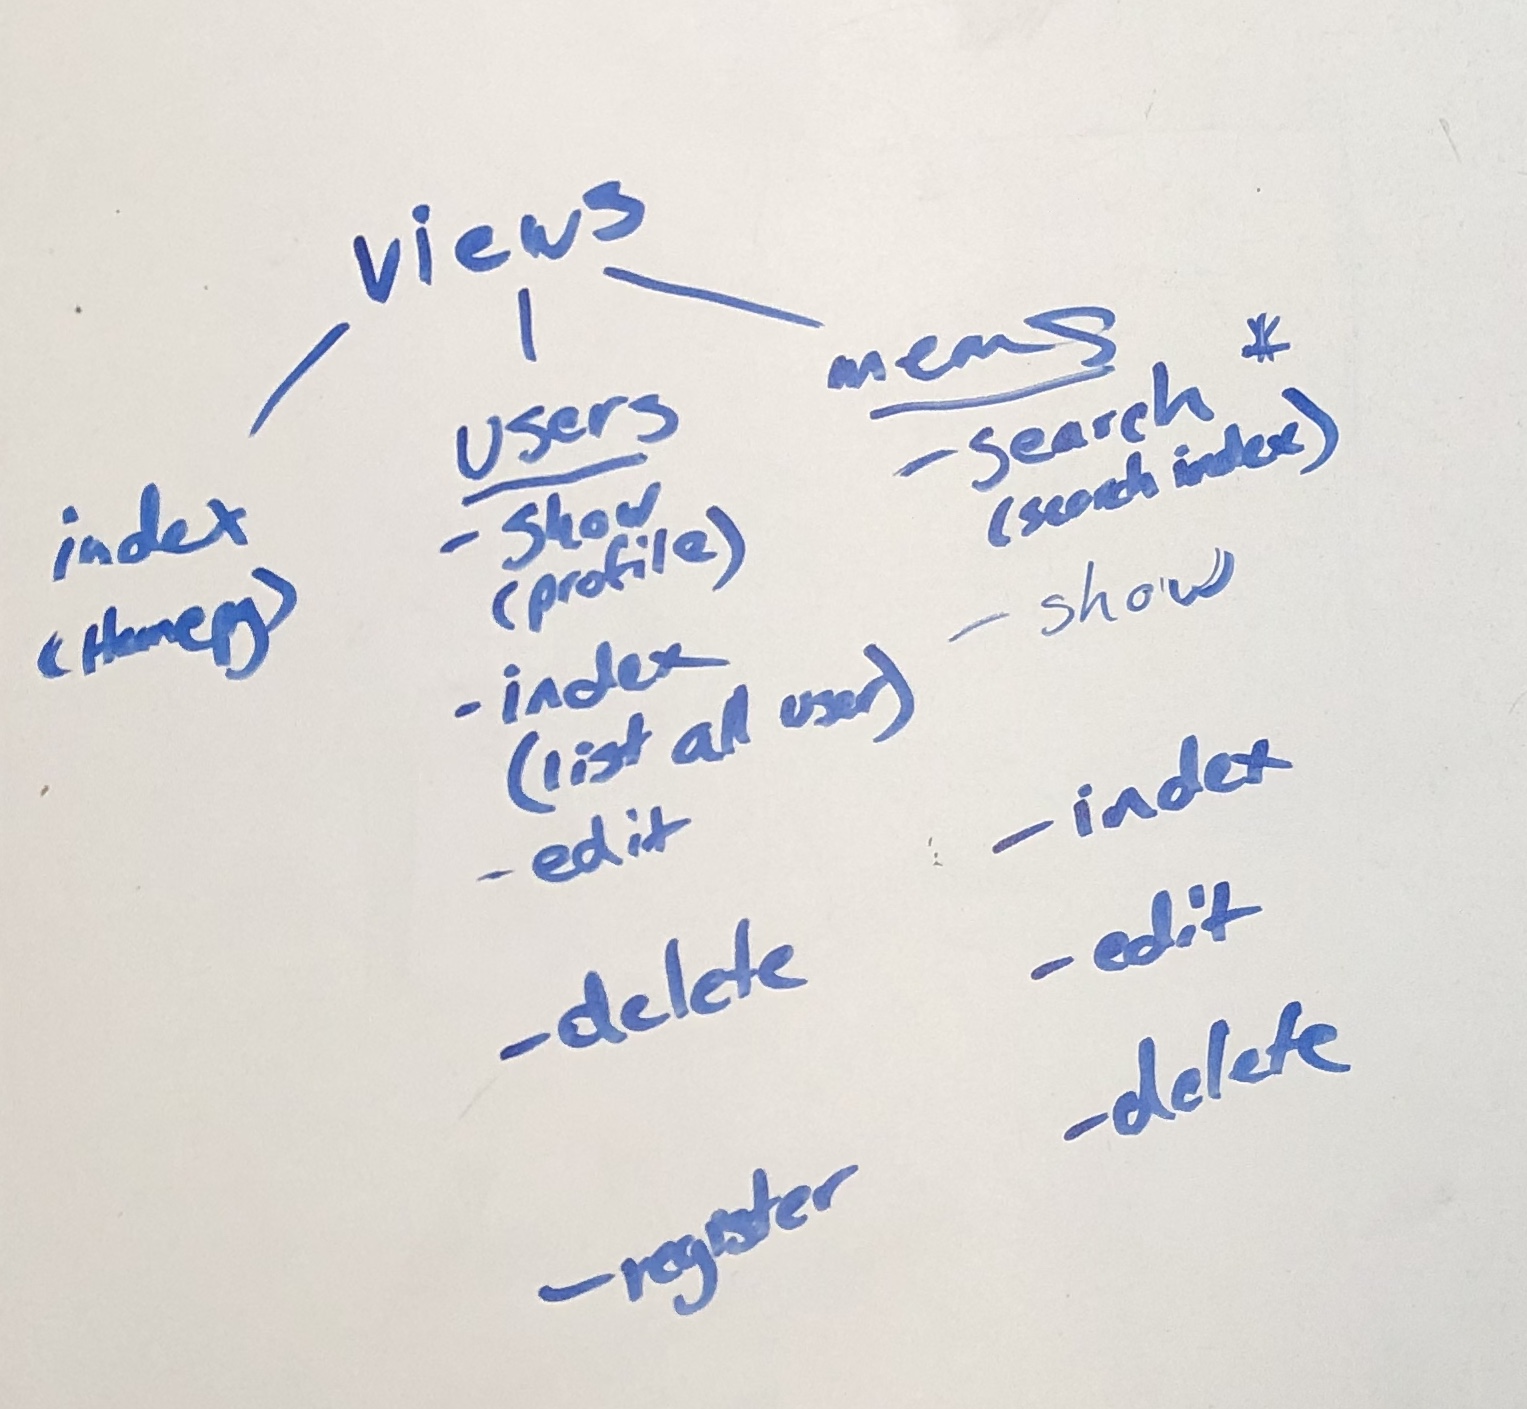 views
index
(Homepg)
users
- show
(profile)
- index
(list all user)
- edit
- delete
- register
mems
- search *
(search index)
- show
- index
- edit
- delete